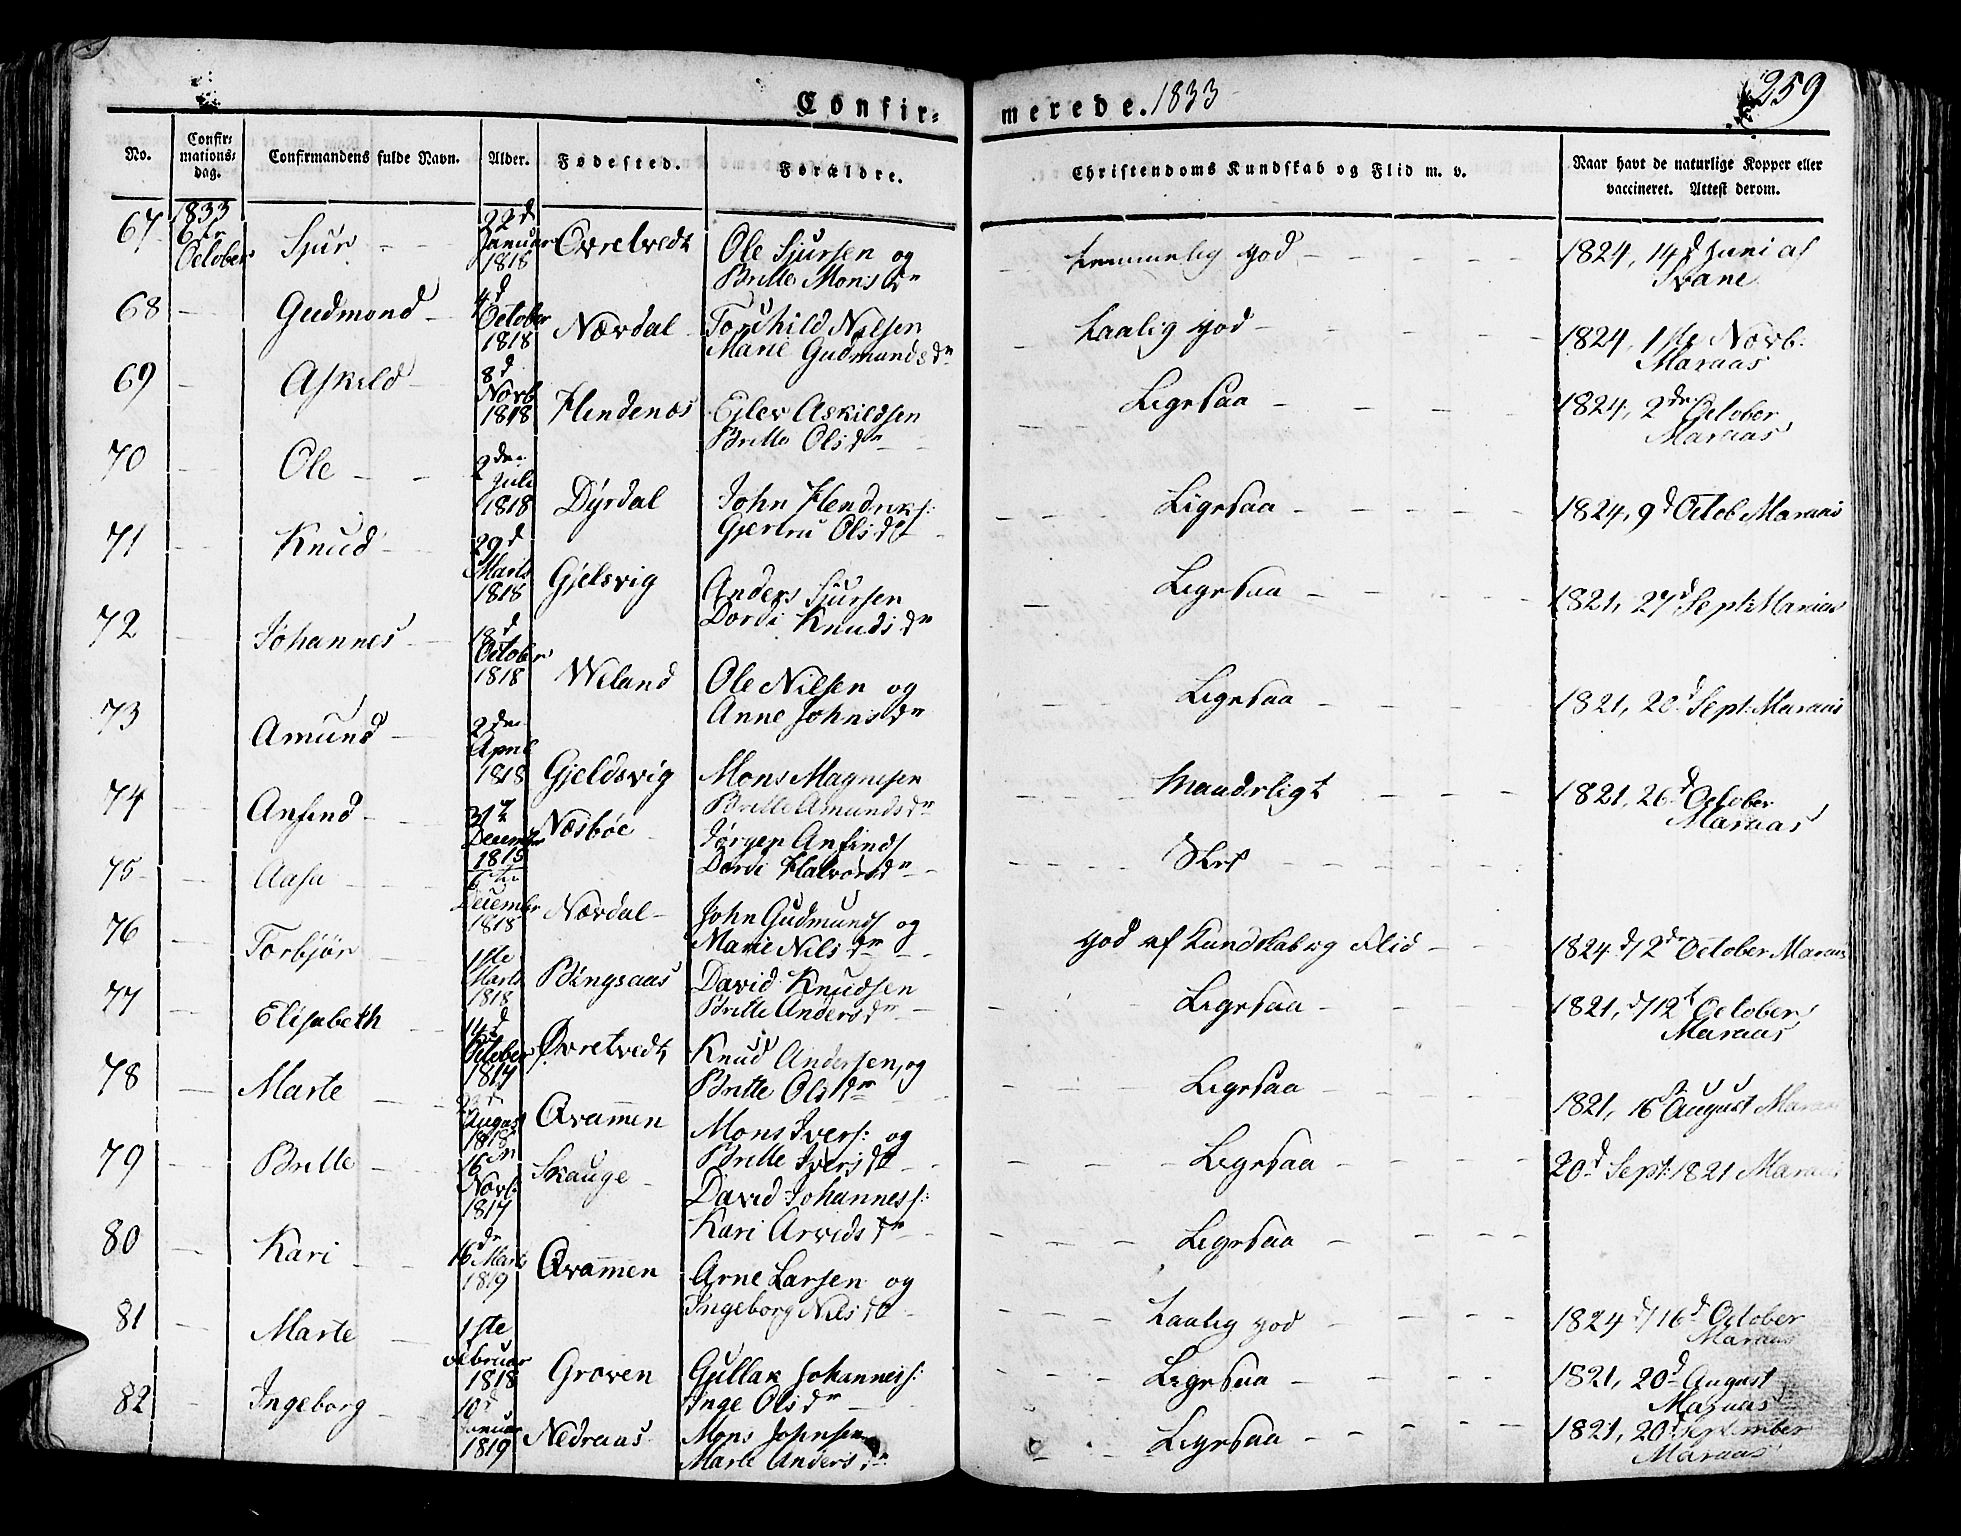 Confir-
merede. 1833
259
No.
Confir-
mations-
dag.
Confirmandens fulde Navn.
Alder.
Fødested.
Forældre.
Christendoms Kundskab og Flid m. v.
Naar havt de naturlige Kopper eller
vaccineret. Attest derom.
67 1833 October Sjur 22d Januar 1818 Øvretvedt Ole Sjursen og
Britte Monsdr temmelig god 1824, 14d Juni af
Svane
68 Gudmond 4d October 1818 Nævdal Nilsen
Marie Gudmundsdr taalig god 1824, 1ste Novb.
Maraas
69 Askild 8d Novb 1818 Hendenæs Ejlev Askildsen
Britte Olsdr Ligesaa 1824, 2den October
Maraas
70 Ole 2den Juli 1818 Dyrdal John Hendriks:
Gjertru Olsdr Ligesaa 1824, 9d Octob Maraas
71 Knud 29d Marts 1818 Gjelsvig Anders Sjursen
Dordi Knudsdr Ligesaa 1821, 27d Sept: Maraas
72 Johannes 18d October 1818 Weland Ole Nilsen og
Anne Johnsdr Ligesaa 1821, 20d Sept: Maraas
73 Amund 2den April 1818 Gjeldsvig Mons Magnesen
Britte Amundsdr Maaderligt 1821, 26d October
Maraas
74 Anfind 31te December 1815 Næsbøe Jørgen Anfinds
Dordi Halvorsdr Slet
75 Aasa December 1818 Nævdal John Gudmunds og
Marie Nilsdr god af Kundskab og Flid 1824 d/12 October Maraas
76 Torbjør 1ste Marts 1818 Bingsaas David Knudsen
Britte Andersdr Ligesaa 1821, d/12t October
Maraas
77 Elisabeth 14d October 1817 Øvretvedt Knud Andersen, og
Britte Olsdr Ligesaa 1821, 16 August Maraas
78 Marte August 1818 Qvammen Mons Ivers: og
Britte Iversdr Ligesaa 20d Sept: 1821 Maraas
79 Britte 16 Novb: 1817 Skauge David Johanness:
Kari Arvedsdr Ligesaa
80 Kari 16de Marts 1819 Qvammen Arne Larsen og
Ingeborg Nilsdr taalig god 1824 d/16d October
Maraas
81 Marte 1ste Februar 1818 Groven Gullak Johanness:
Inge Olsdr Ligesaa 1821, 20d August
Maraas
82 Ingeborg 10d Januar 1819 Nedraas Mons Johnsen
Marte Andersdr Ligesaa 1821, 20d September
Maraas